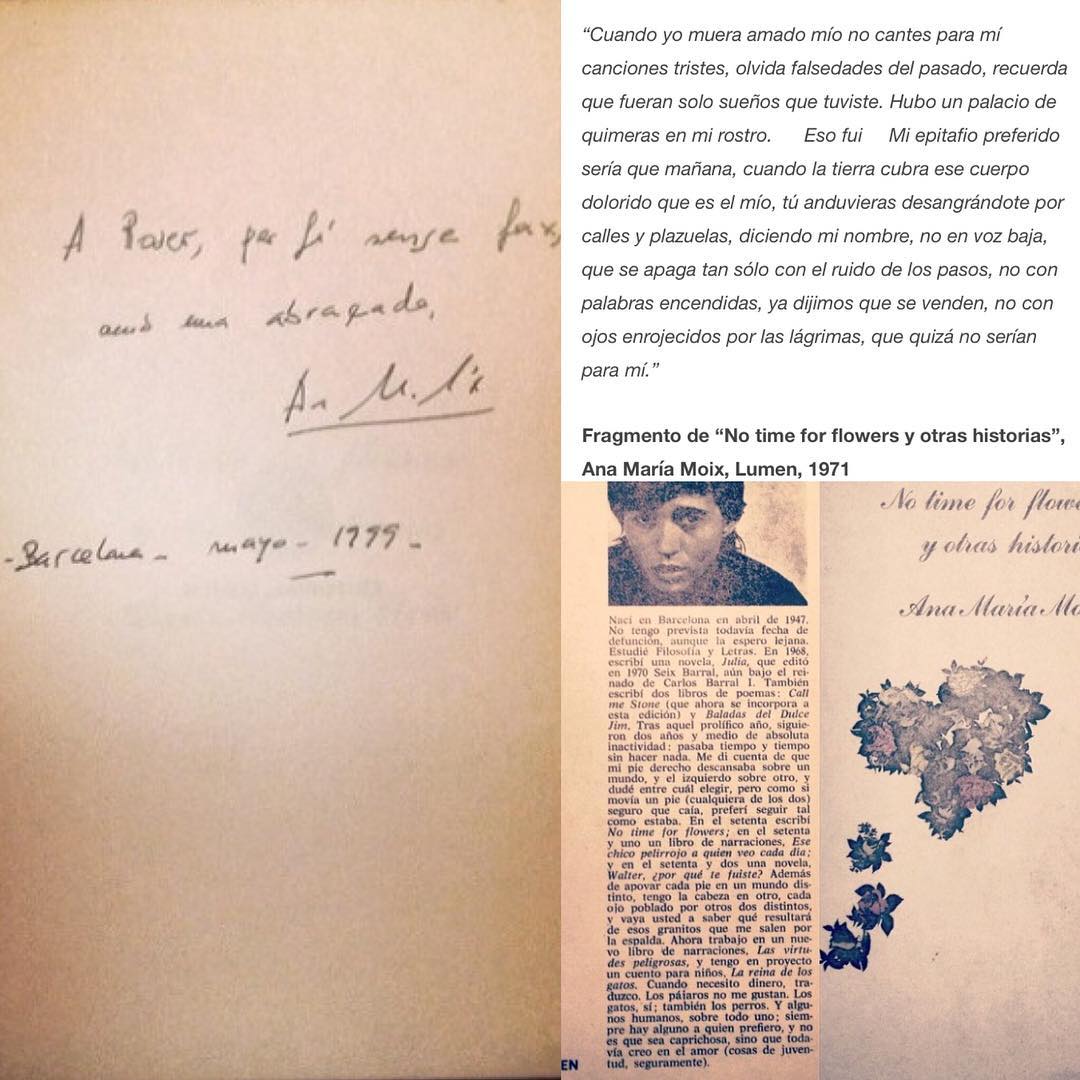 A Roser, per fi sense fax,
amb una abraçada,
Ana M. Moix
-Barcelona - mayo - 1999 -
“Cuando yo muera amado mío no cantes para mí
canciones tristes, olvida falsedades del pasado, recuerda
que fueran solo sueños que tuviste. Hubo un palacio de
quimeras en mi rostro. Eso fui Mi epitafio preferido
sería que mañana, cuando la tierra cubra ese cuerpo
dolorido que es el mío, tú anduvieras desangrándote por
calles y plazuelas, diciendo mi nombre, no en voz baja,
que se apaga tan sólo con el ruido de los pasos, no con
palabras encendidas, ya dijimos que se venden, no con
ojos enrojecidos por las lágrimas, que quizá no serían
para mí.”
Fragmento de “No time for flowers y otras historias”,
Ana María Moix, Lumen, 1971
Nací en Barcelona en abril de 1947.
No tengo prevista todavía fecha de
defunción, aunque la espero lejana.
Estudié Filosofía y Letras. En 1968,
escribí una novela, Julia, que editó
en 1970 Seix Barral, aún bajo el rei-
nado de Carlos Barral I. También
escribí dos libros de poemas: Call
me Stone (que ahora se incorpora a
esta edición) y Baladas del Dulce
Jim. Tras aquel prolífico año, siguie-
ron dos años y medio de absoluta
inactividad: pasaba tiempo y tiempo
sin hacer nada. Me di cuenta de que
mi pie derecho descansaba sobre un
mundo, y el izquierdo sobre otro, y
dudé entre cuál elegir, pero como si
movía un pie (cualquiera de los dos)
seguro que caía, preferí seguir tal
como estaba. En el setenta escribí
No time for flowers; en el setenta
y uno un libro de narraciones, Ese
chico pelirrojo a quien veo cada día;
y en el setenta y dos una novela,
Walter, ¿por qué te fuiste? Además
de apoyar cada pie en un mundo dis-
tinto, tengo la cabeza en otro, cada
ojo poblado por otros dos distintos,
y vaya usted a saber qué resultará
de esos granitos que me salen por
la espalda. Ahora trabajo en un nue-
vo libro de narraciones, Las virtu-
des peligrosas, y tengo en proyecto
un cuento para niños, La reina de los
gatos. Cuando necesito dinero, tra-
duzco. Los pájaros no me gustan. Los
gatos, sí; también los perros. Y algu-
nos humanos, sobre todo uno; siem-
pre hay alguno a quien prefiero, y no
es que sea caprichosa, sino que toda-
vía creo en el amor (cosas de juven-
tud, seguramente).
EN
No time for flowe
y otras histori
Ana María Mo